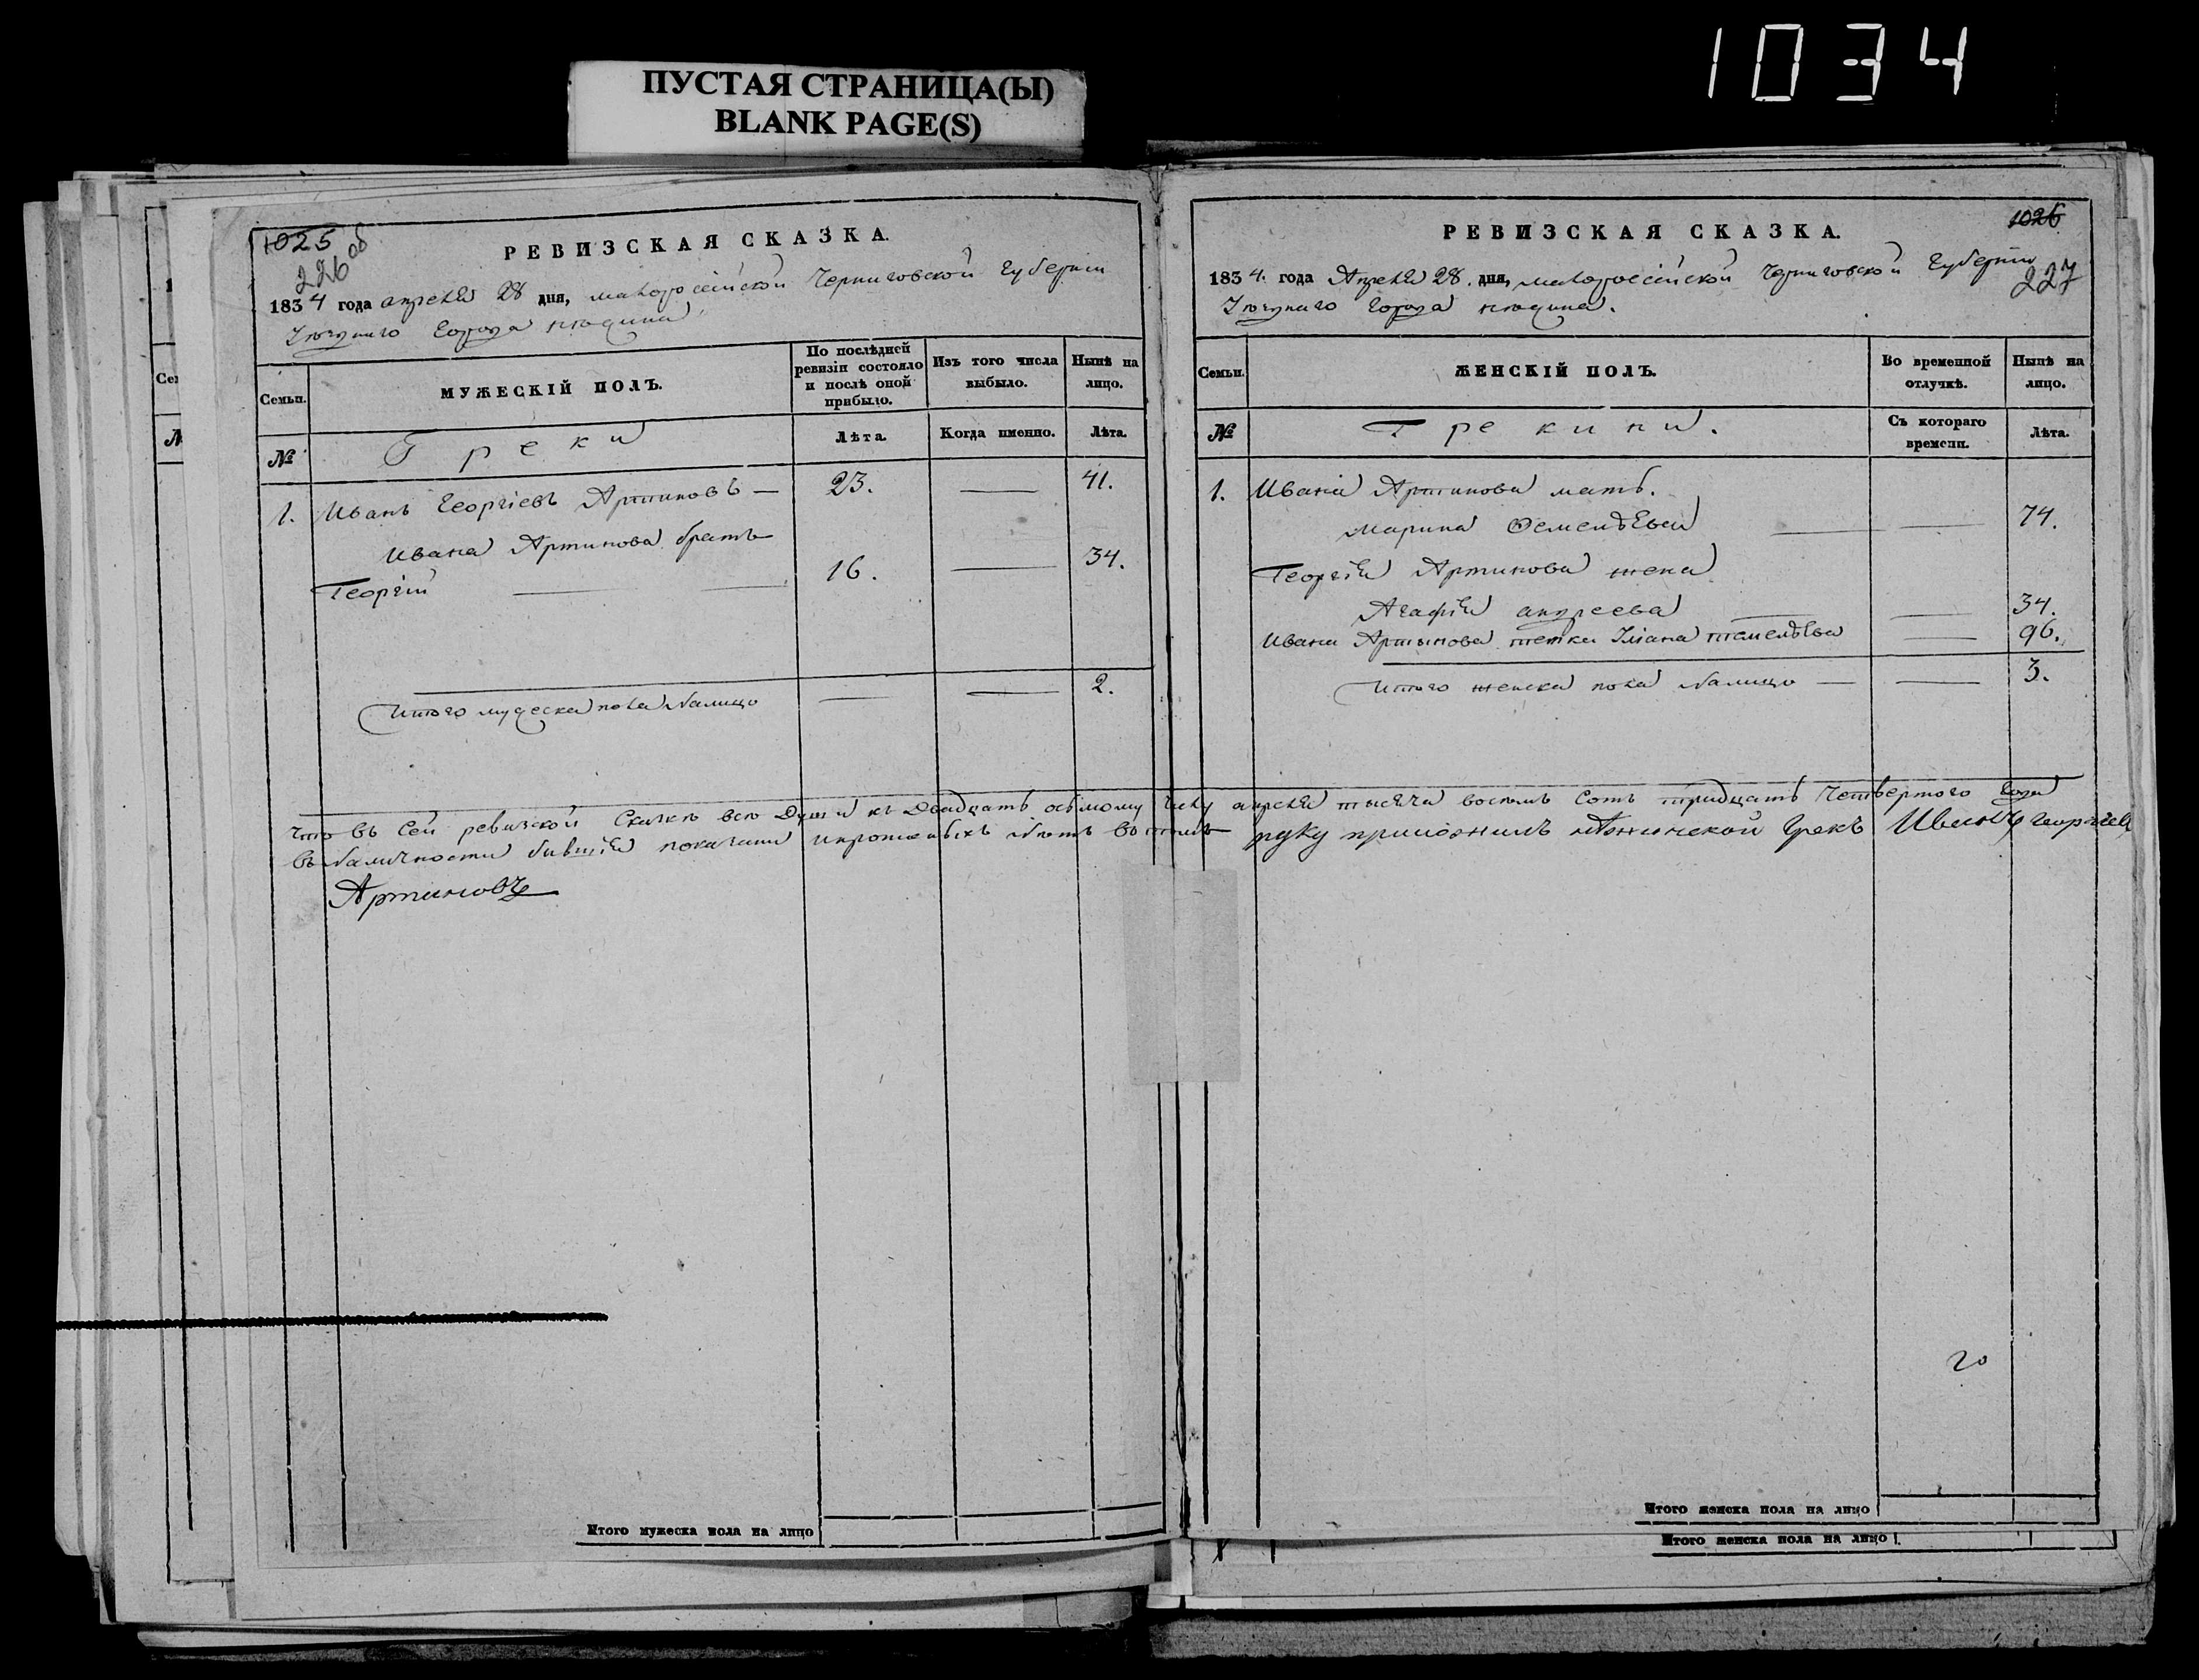 1034
ПУСТАЯ СТРАНИЦА(Ы)
BLANK PAGE(S)
1025
226 об
РЕВИЗСКАЯ СКАЗКА.
1834 года апреля 28 дня, малороссійской Черниговской Губерніи
города нежина
Семьи.
МУЖЕСКІЙ ПОЛЪ.
По послѣдней ревизіи состояло и послѣ оной прибыло.
Изъ того числа выбыло.
Нынѣ на лицо.
№
Греки
Лѣта.
Когда именно.
Лѣта.
1. Иванъ Георгіевъ Артиновъ — 23. — 41.
Ивана Артинова братъ
Георгій — 16. — 34.
Итого мужеска пола налицо — — 2.
1026
227
РЕВИЗСКАЯ СКАЗКА.
1834. года Апреля 28. дня, малороссійской Черниговской Губерніи
города нежина.
Семьи.
ЖЕНСКІЙ ПОЛЪ.
Во временной отлучкѣ.
Нынѣ на лицо.
№
Грекини.
Съ котораго времени.
Лѣта.
1. Ивана Артинова мать.
Марина — — 74.
Георгія Артинова жена
Агафія андреева — — 34.
Ивана Артынова тетка — 96.
Итого женска пола налицо — — 3.
Что въ сей ревизской Сказке все Души къ Двадцать осьмому числу апреля тысяча восемь сотъ тридцать Четвертого года
въ наличности бывшія показани въ томъ руку приложилъ Нѣжинской Грекъ Иванъ Георгіевъ
Артиновъ
20
Итого мужеска пола на лицо
Итого женска пола на лицо
Итого женска пола на лицо